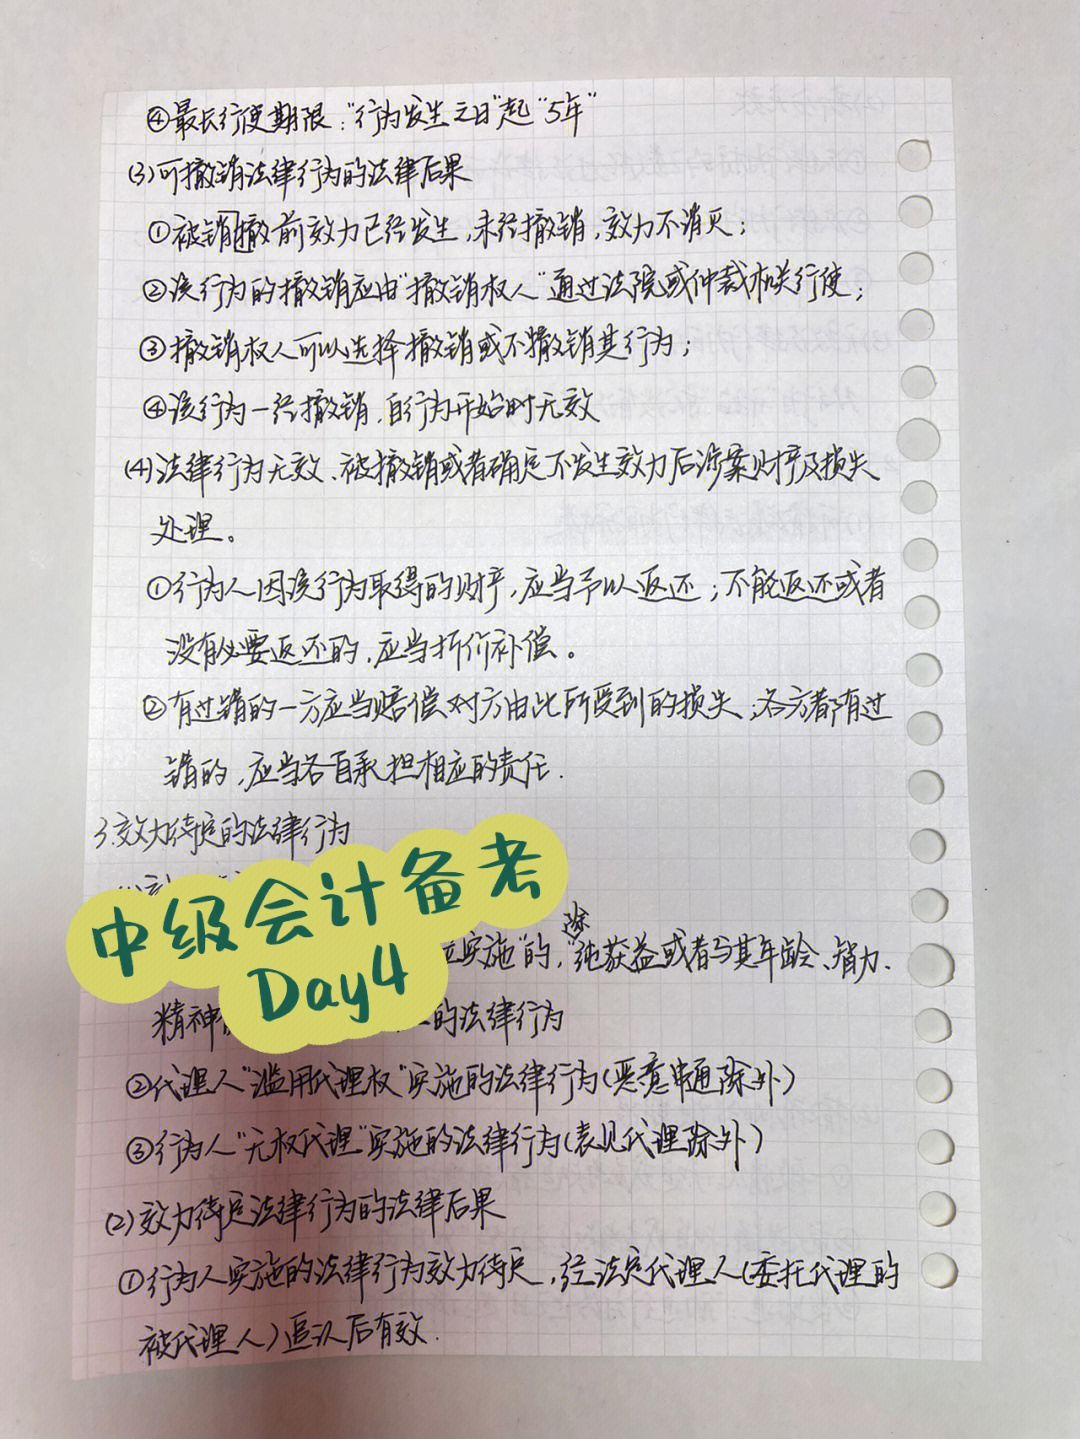 ④最长行使期限："行为发生之日"起"5年"
(3)可撤销法律行为的法律后果
①被销撤前效力已经发生,未经撤销,效力不消灭;
②该行为的撤销应由"撤销权人"通过法院或仲裁机关行使;
③撤销权人可以选择撤销或不撤销其行为;
④该行为一经撤销,自行为开始时无效
(4)法律行为无效、被撤销或者确定不发生效力后涉案财产及损失
处理。
①行为人因该行为取得的财产,应当予以返还;不能返还或者
没有必要返还的,应当折价补偿。
②有过错的一方应当赔偿对方由此所受到的损失;各方都有过
错的,应当各自承担相应的责任.
3.效力待定的法律行为
中级会计备考
Day4
实施"的,"除纯获益或者与其年龄、智力、
精神 的法律行为
②代理人"滥用代理权"实施的法律行为(恶意串通除外)
③行为人"无权代理"实施的法律行为(表见代理除外)
(2)效力待定法律行为的法律后果
①行为人实施的法律行为效力待定,经法定代理人(委托代理的
被代理人)追认后有效.